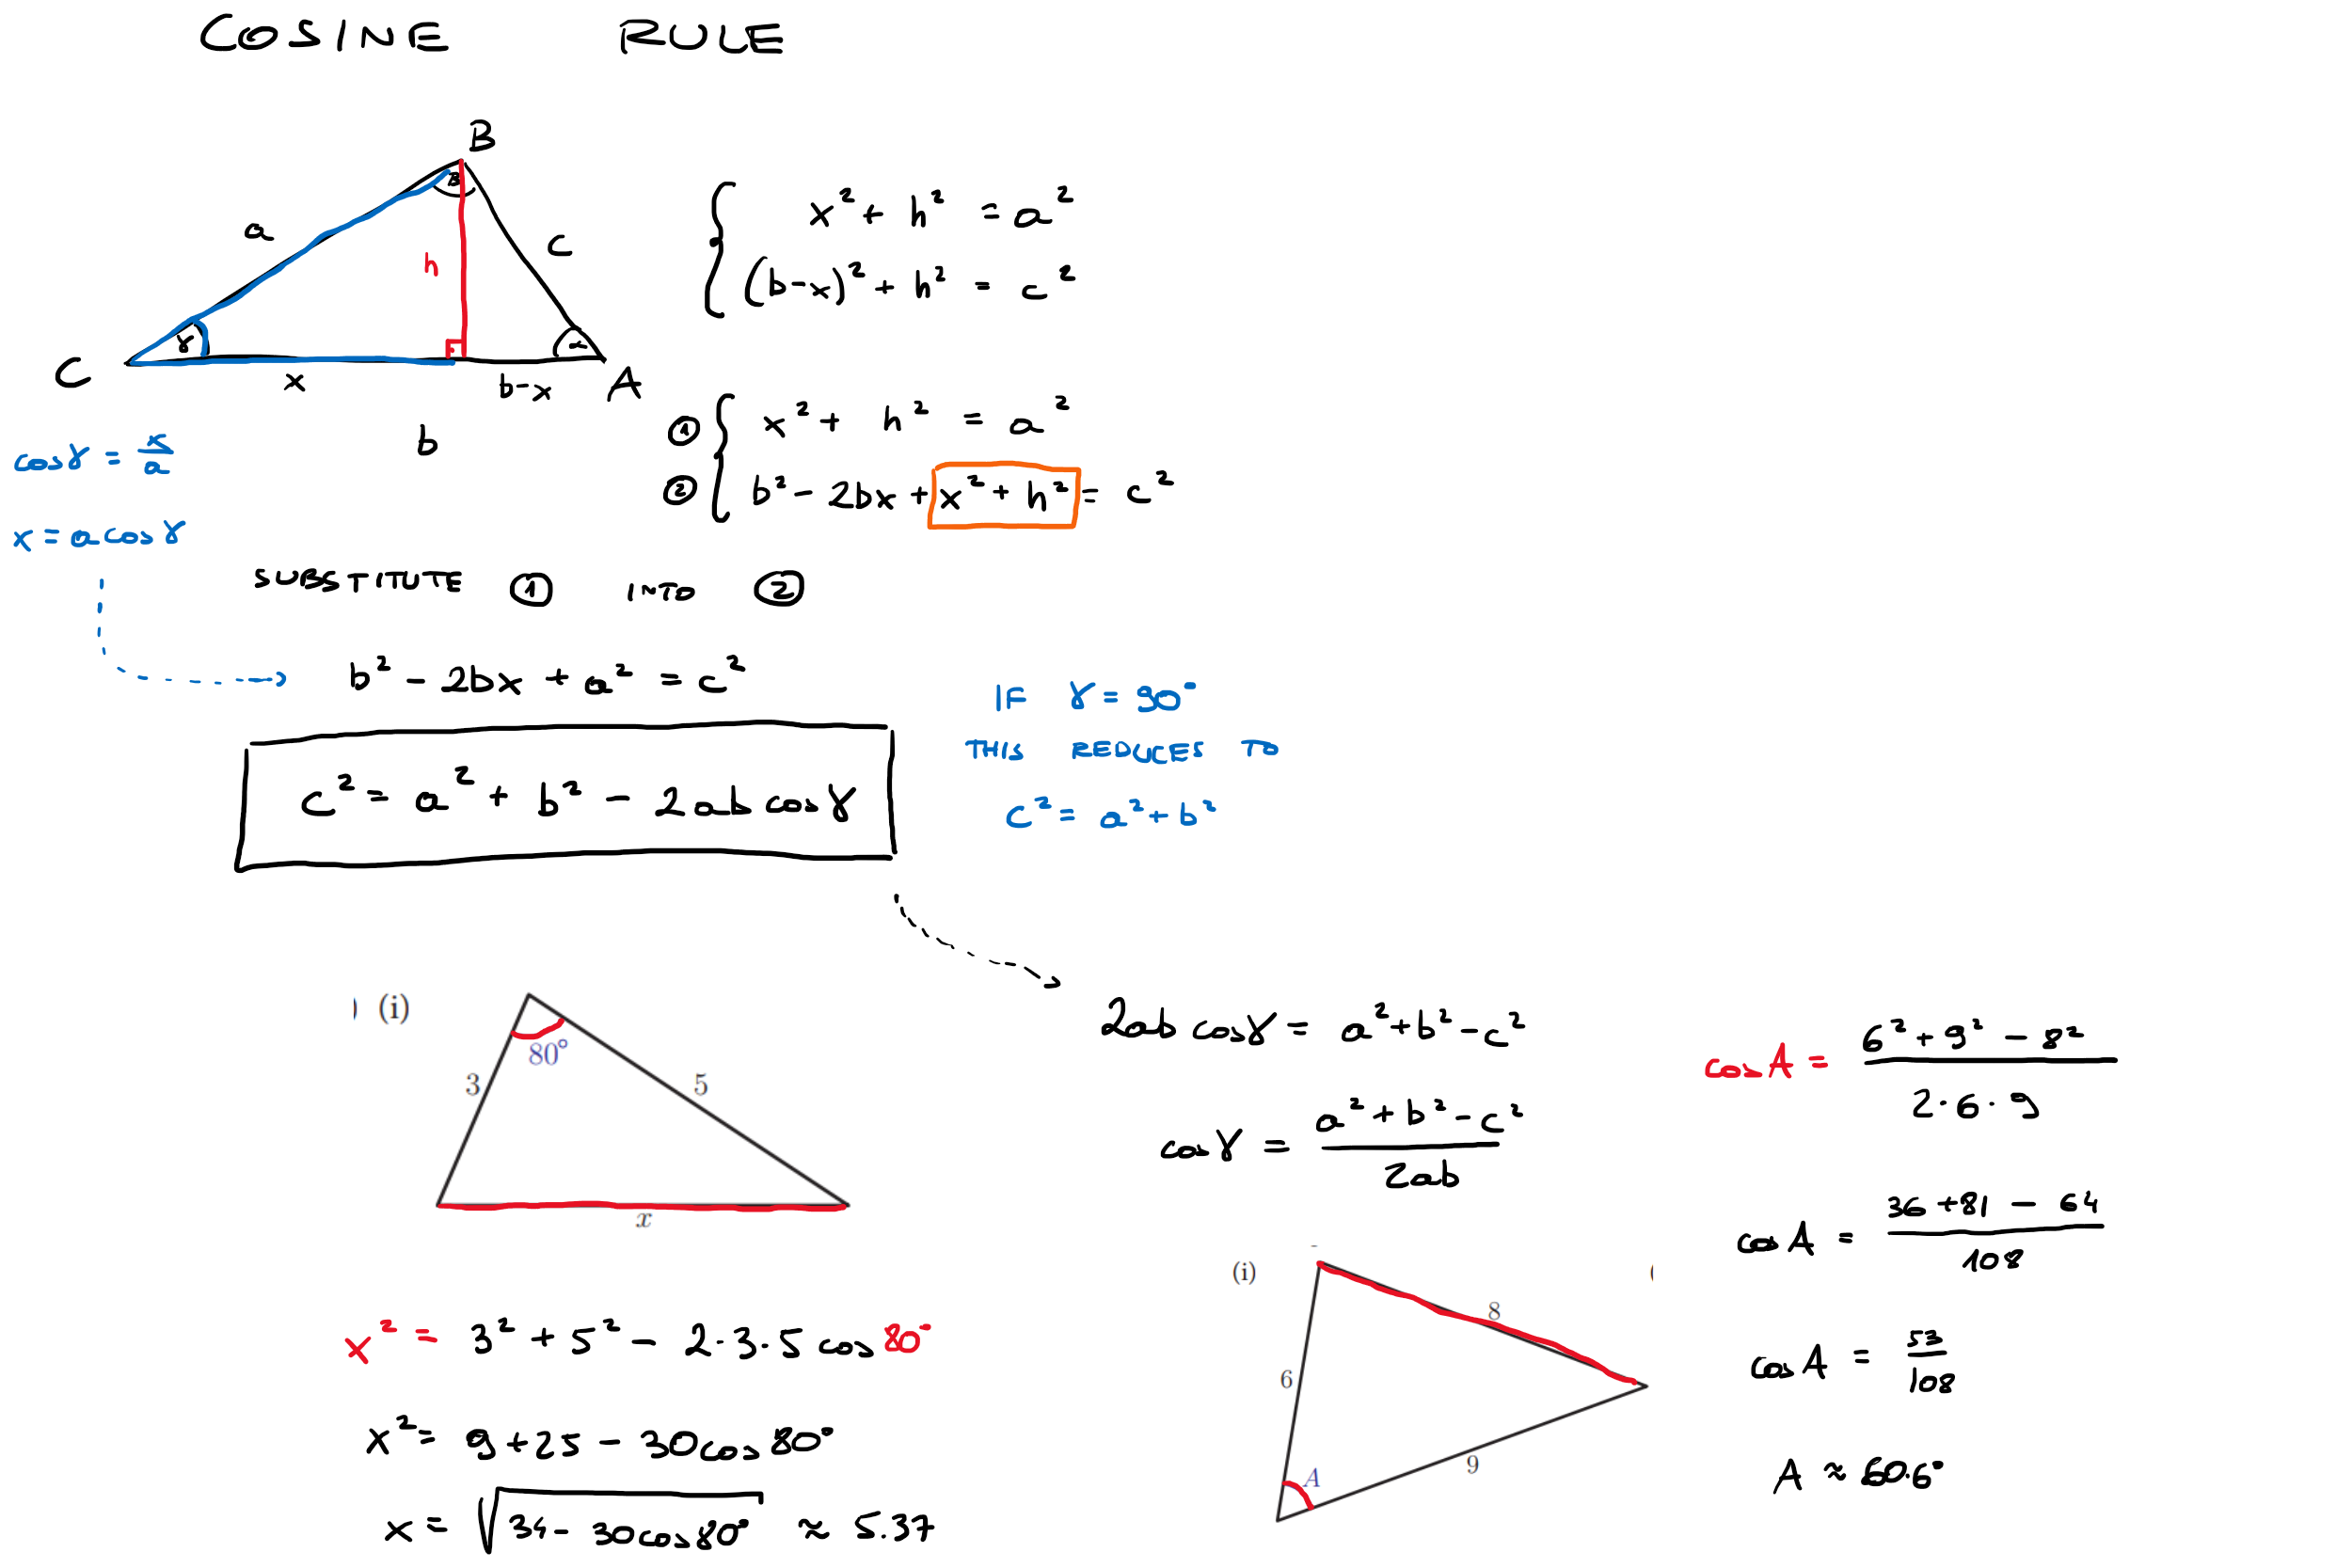 COSINE RULE
B
β
a
c
h
γ
α
C
x
b-x
A
b
x² + h² = a²
(b-x)² + h² = c²
① x² + h² = a²
② b² - 2bx + x² + h² = c²
cosγ = x/a
x = a cosγ
SUBSTITUTE ① INTO ②
b² - 2bx + a² = c²
c² = a² + b² - 2ab cosγ
IF γ = 90°
THIS REDUCES TO
c² = a² + b²
) (i)
80°
3
5
x
x² = 3² + 5² - 2·3·5 cos 80°
x² = 9 + 25 - 30cos 80°
x = √(34 - 30cos80°) ≈ 5.37
2ab cosγ = a² + b² - c²
cosγ = (a² + b² - c²)/2ab
(i)
(
8
6
9
A
cosA = (6² + 9² - 8²)/(2·6·9)
cosA = (36 + 81 - 64)/108
cosA = 53/108
A ≈ 60.6°